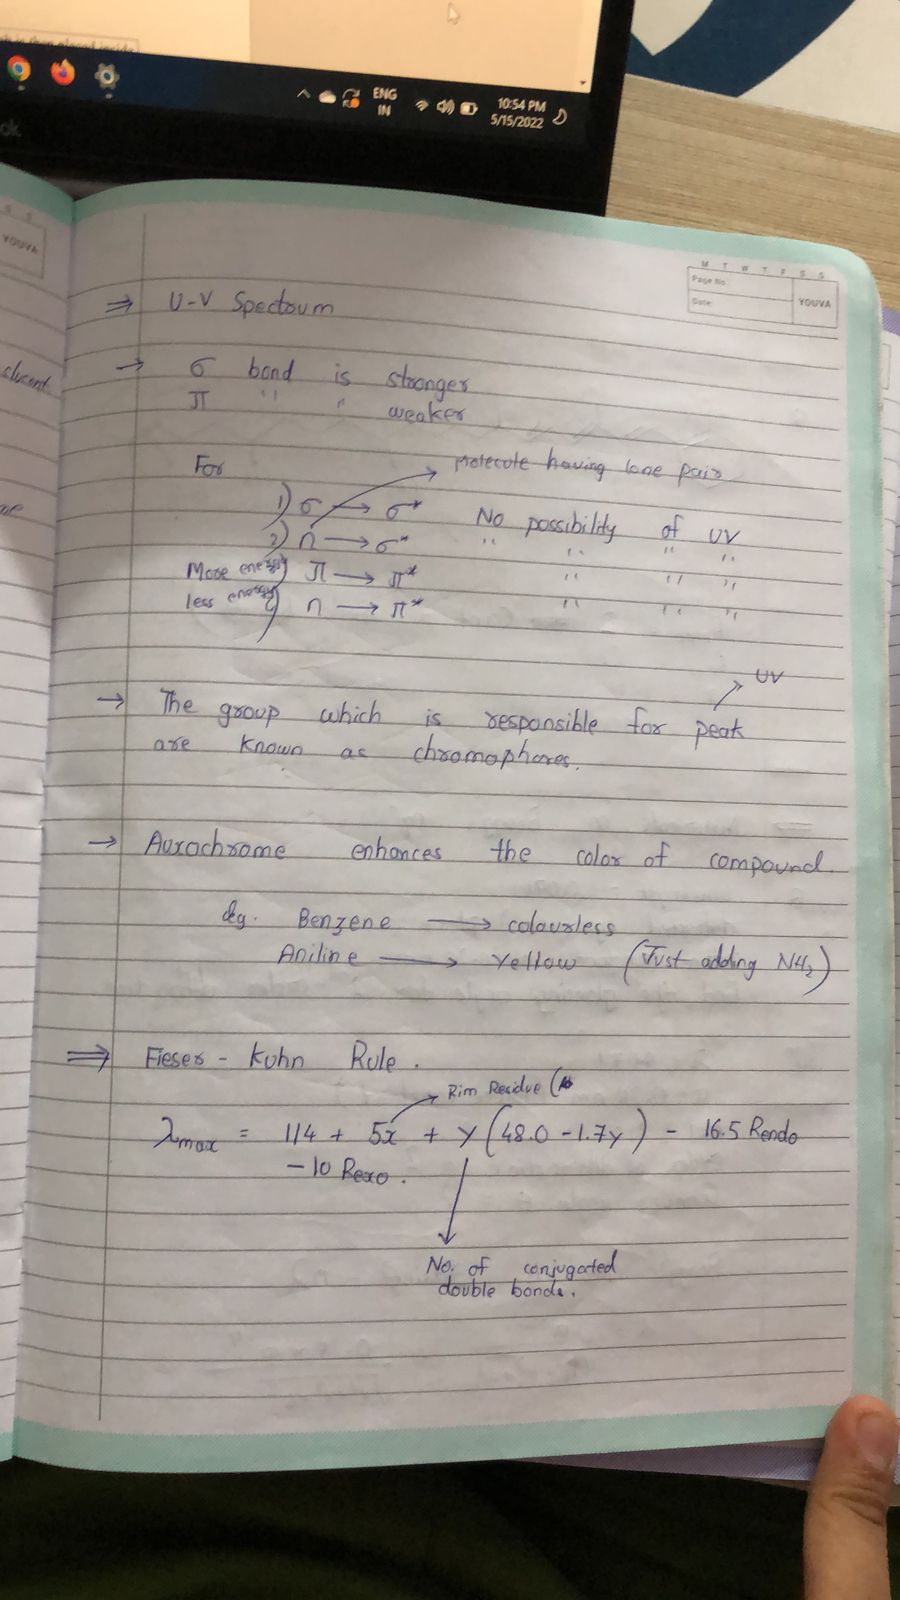 ENG
IN
10:54 PM
5/15/2022
YOUVA
M T W T F S S
Page No.
Date:
YOUVA
⇒ U-V Spectoum
→ σ bond is stronger
π " " weaker
For
molecule having lone pair
1) σ → σ* No possibility of UV
2) n → σ* " " " "
More energy) π → π* " " "
less energy) n → π* " " "
UV
→ The group which is responsible for peak
are known as chromophores.
→ Auxochrome enhances the color of compound.
eg. Benzene → colourless
Aniline → Yellow (Just adding NH₂)
⇒ Fieser - Kuhn Rule.
Rim Residue (
λmax = 114 + 5x + y (48.0 - 1.7y) - 16.5 Rendo
- 10 Rexo.
No. of conjugated
double bonds.